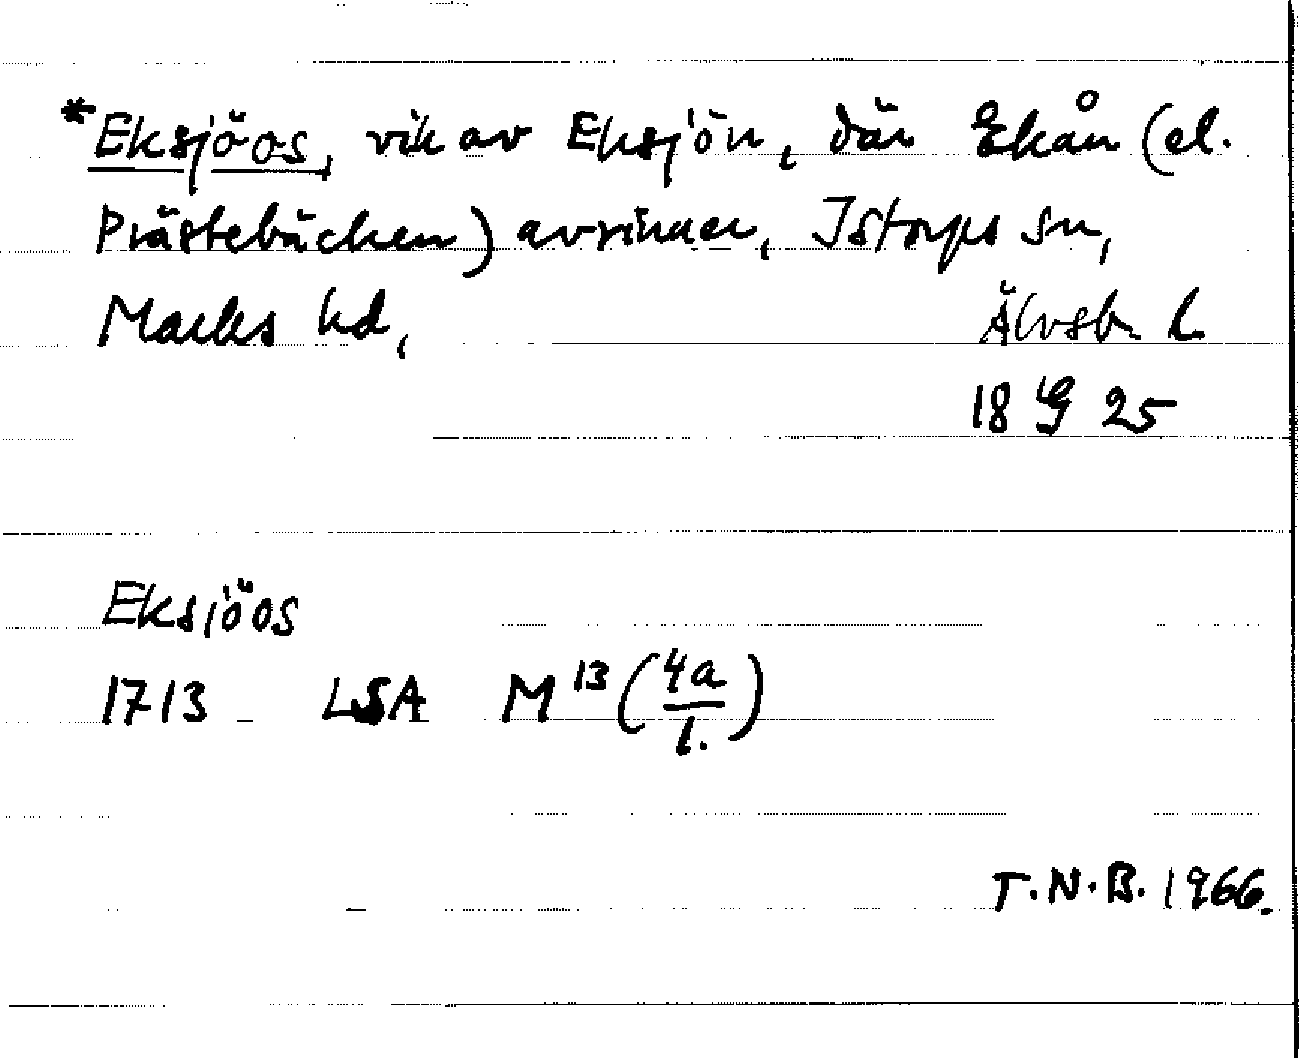 *Eksjöos, vik av Eksjön, där Ekån (el.
Prästebäcken) avrinner, Istorps sn,
Marks hd, Älvsb. l.
18 G 25
Eksjöos
1713 LSA M¹³ (4a/1.)
T.N.B. 1966.